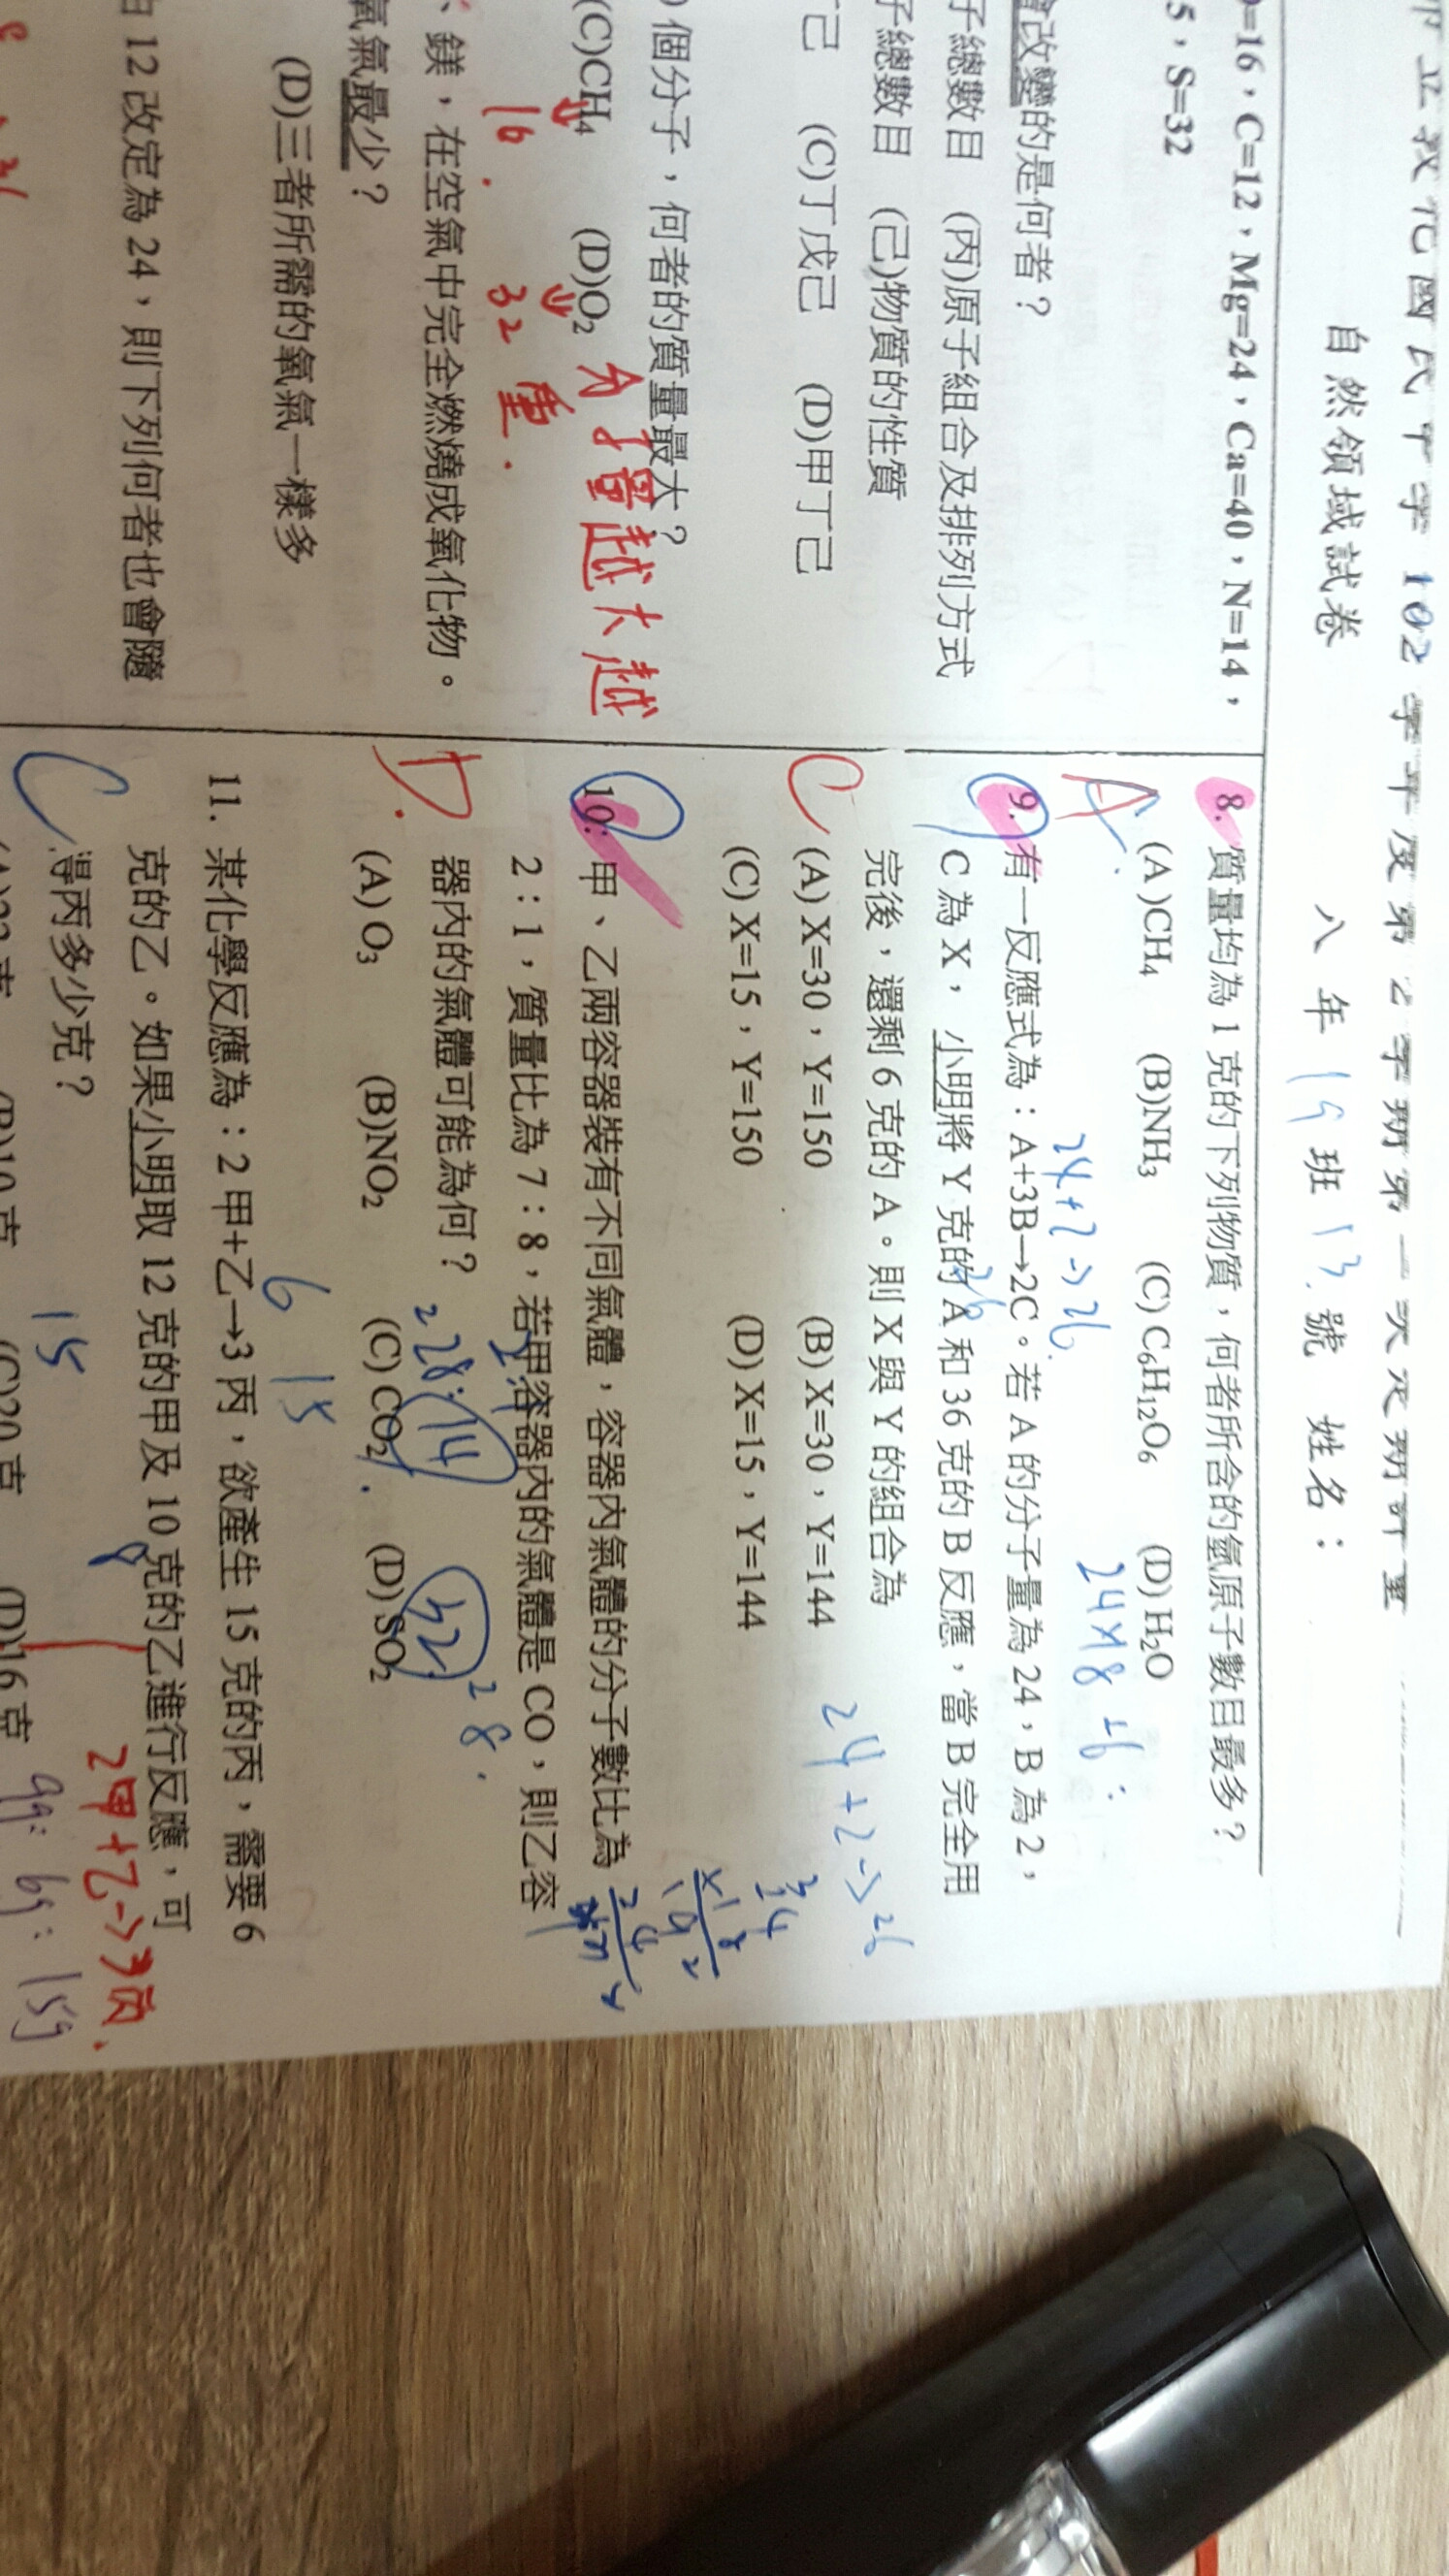 102 學年度第 2 學期第一次定期評量
自然領域試卷 八年 19 班 13 號 姓名：
=16，C=12，Mg=24，Ca=40，N=14，
5，S=32
會改變的是何者？
子總數目 (丙)原子組合及排列方式
子總數目 (己)物質的性質
己 (C)丁戊己 (D)甲丁己
個分子，何者的質量最大？
(C)CH4 (D)O2
16. 32 重.
分子量越大越
、鎂，在空氣中完全燃燒成氧化物。
氧氣最少？
(D)三者所需的氧氣一樣多
由 12 改定為 24，則下列何者也會隨
8. 質量均為 1 克的下列物質，何者所含的氫原子數目最多？
A
(A)CH4 (B)NH3 (C) C6H12O6 (D) H2O
24+2→26.
9. 有一反應式為：A+3B→2C。若 A 的分子量為 24，B 為 2，
C 為 X，小明將 Y 克的 A 和 36 克的 B 反應，當 B 完全用
完後，還剩 6 克的 A。則 X 與 Y 的組合為
24+2→26
C
(A) X=30，Y=150 (B) X=30，Y=144
(C) X=15，Y=150 (D) X=15，Y=144
10. 甲、乙兩容器裝有不同氣體，容器內氣體的分子數比為
2：1，質量比為 7：8，若甲容器內的氣體是 CO，則乙容
器內的氣體可能為何？
28 14 32
D.
(A) O3 (B)NO2 (C) CO2 (D) SO2
6 15
11. 某化學反應為：2 甲+乙→3 丙，欲產生 15 克的丙，需要 6
克的乙。如果小明取 12 克的甲及 10 克的乙進行反應，可
得丙多少克？
C
15 8
2甲+乙→3丙.
9g: 6g: 15g
(C)20 克 (D)16 克